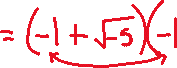 = (-1 + √-5)(-1